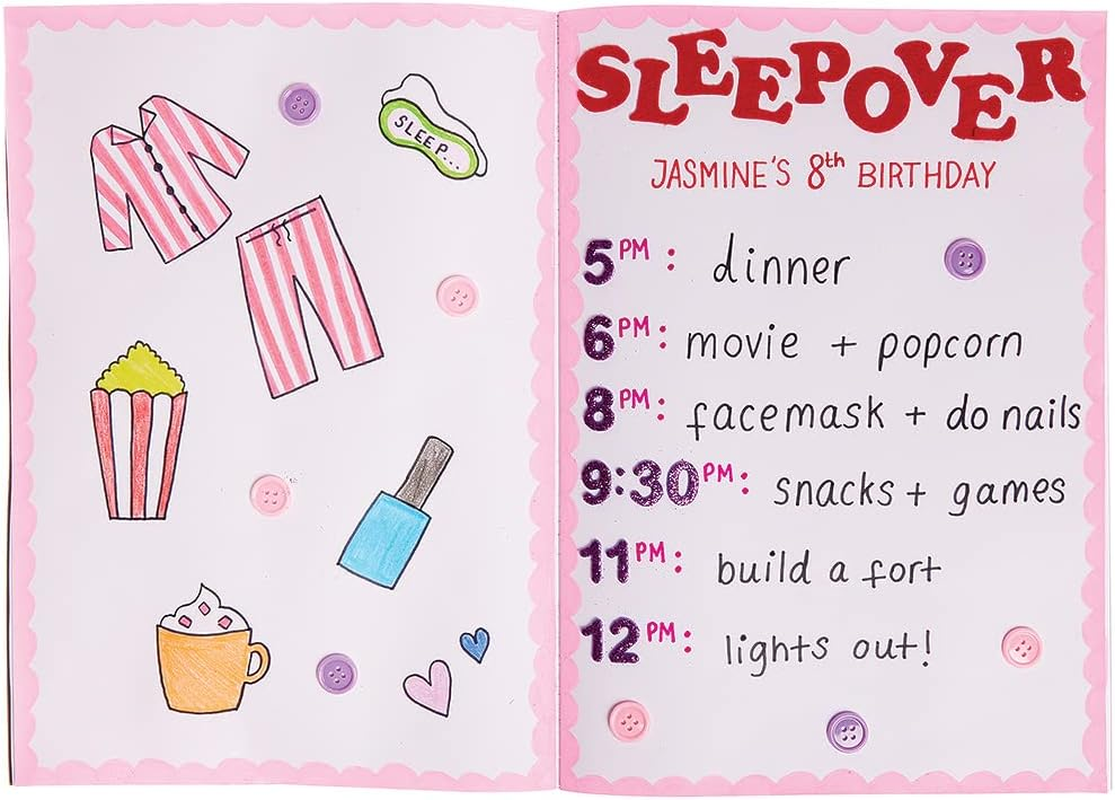 SLEEP...
SLEEPOVER
JASMINE'S 8th BIRTHDAY
5PM: dinner
6PM: movie + popcorn
8PM: facemask + do nails
9:30PM: snacks + games
11PM: build a fort
12PM: lights out!